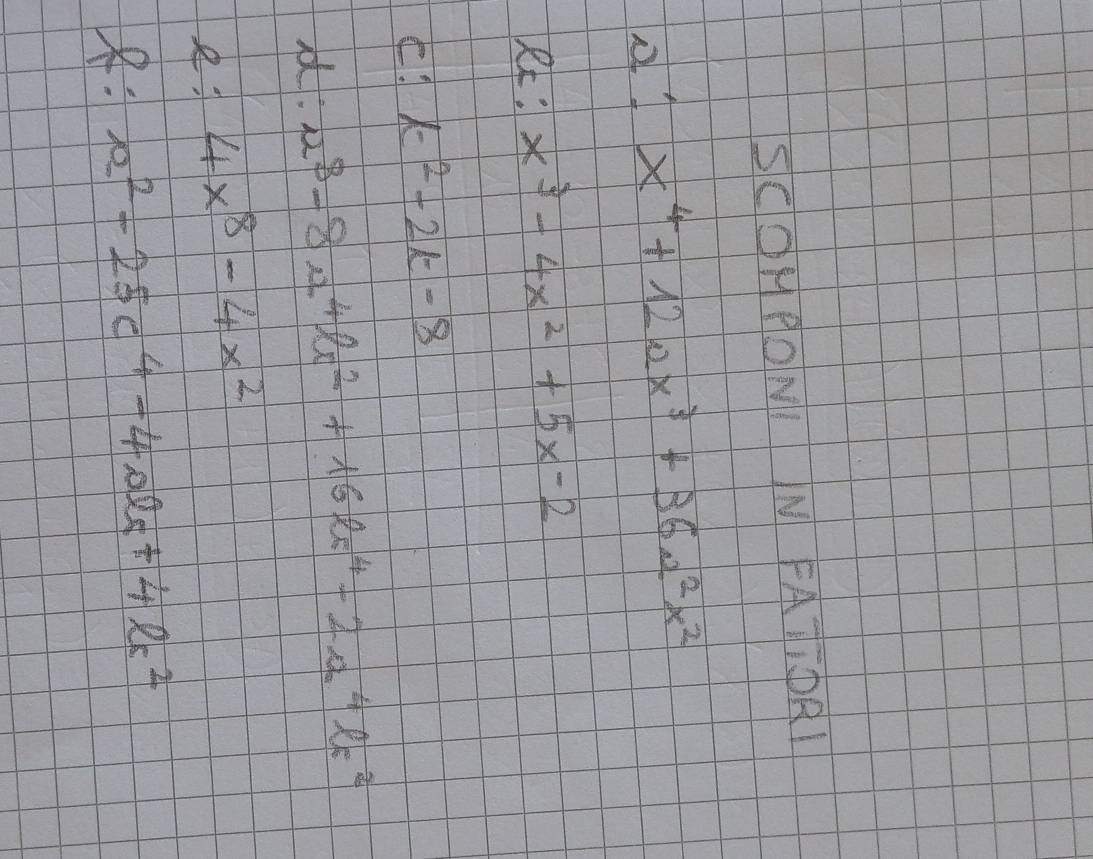 SCOMPONI IN FATTORI
a: x⁴ + 12ax³ + 36a²x²
b: x³ - 4x² + 5x - 2
c: k² - 2k - 8
d: a⁸ - 8a⁴b² + 16b⁴ - 2a⁴b²
e: 4x⁸ - 4x²
f: a² - 25c⁴ - 4ab + 4b²